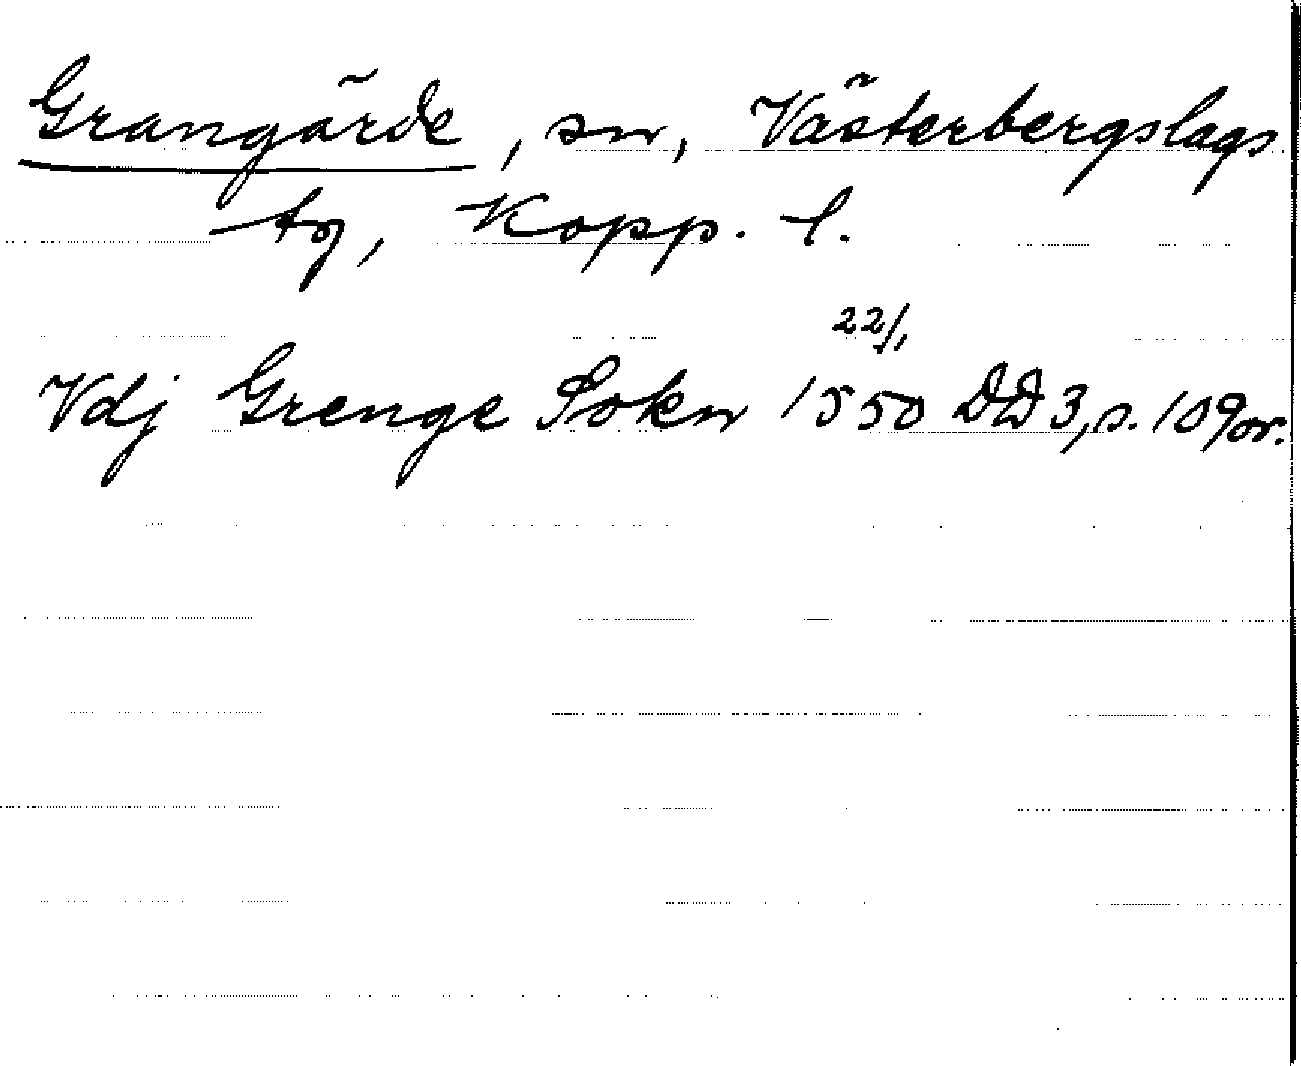 Grangärde, sn, Västerbergslags
tg, Kopp. l.
22/1
Vdj Grenge Sokn 1550 DD 3, s. 109 or.